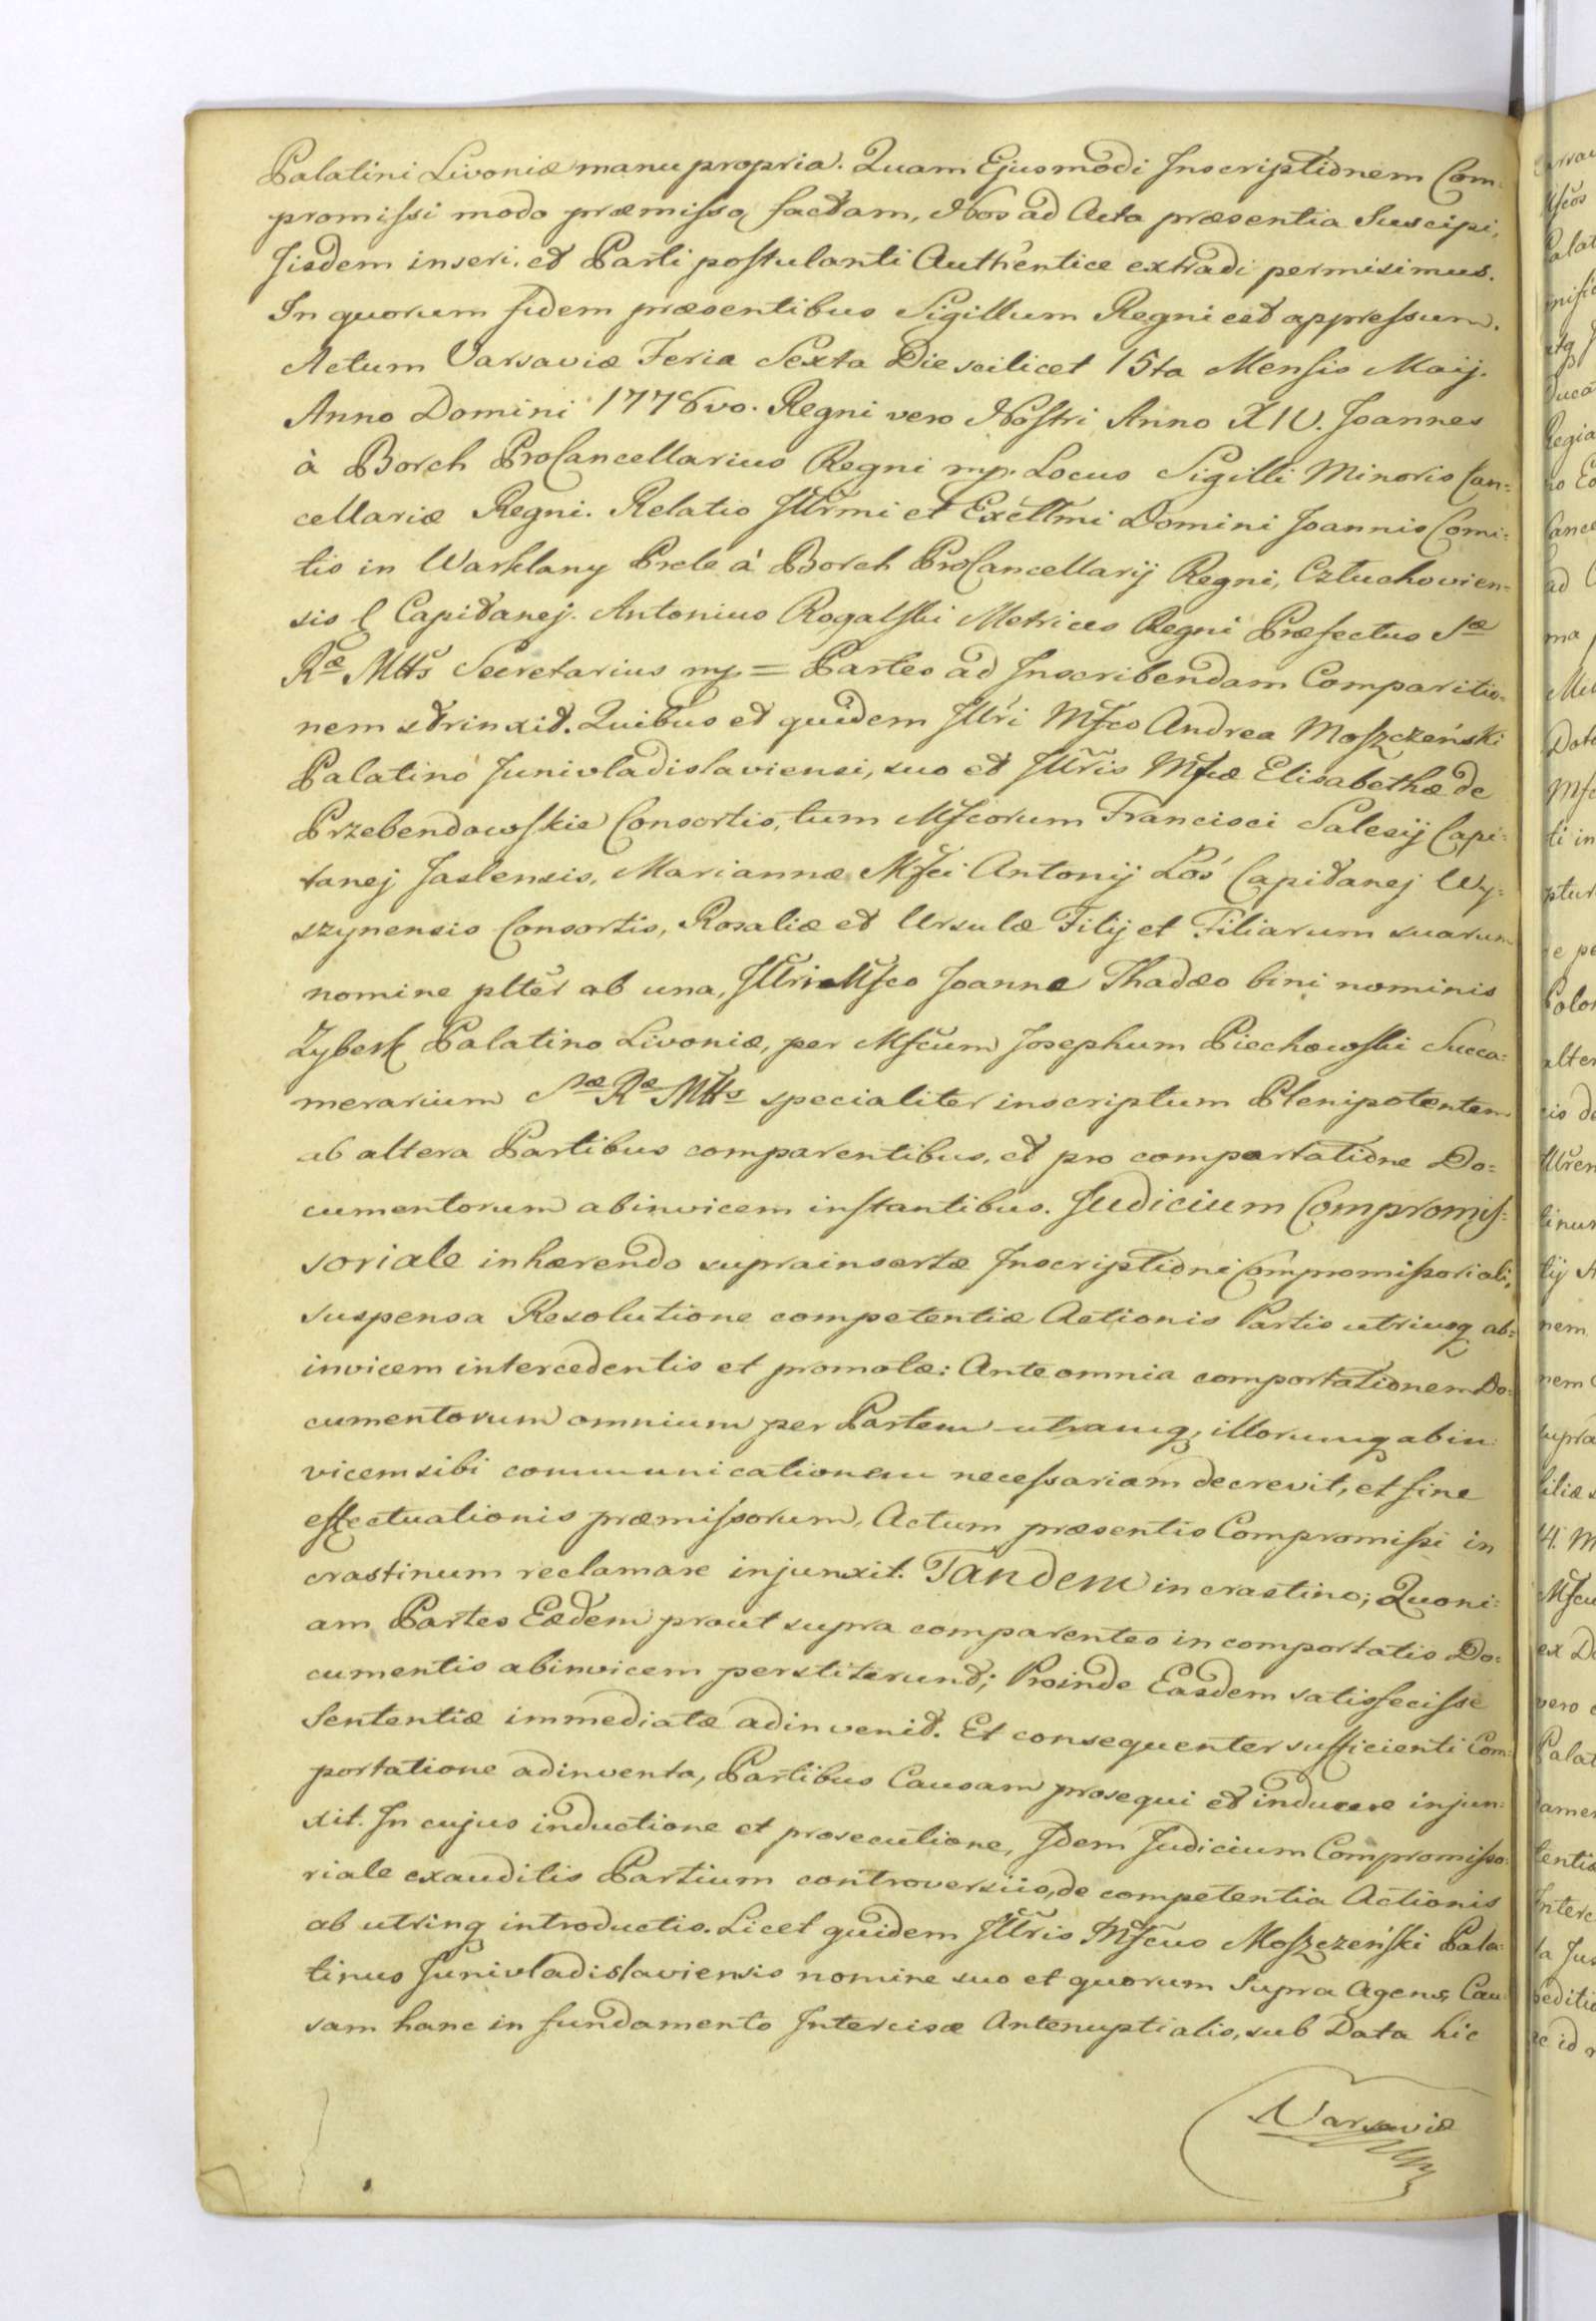 Palatini Livoniæ manu propria. Quam Ejusmodi Inscriptionem Com-
promissi modo præmisso factam, Nos ad Acta præsentia Suscipi,
Iisdem inseri, et Parti postulanti Authentice extradi permisimus.
In quorum fidem præsentibus Sigillum Regni est appressum.
Actum Varsaviæ Feria Sexta Die scilicet 15ta Mensis Maij.
Anno Domini 1778vo. Regni vero Nostri Anno XIV. Joannes
à Borch ProCancellarius Regni mp. Locus Sigilli Minoris Can=
cellariæ Regni. Relatio Jllrmi et Excellmi Domini Joannis Comi=
tis in Warklany Prele à Borch ProCancellarij Regni, Człuchovien=
sis Capitanej. Antonius Rogalski Metrices Regni Præfectus Sæ
Ræ Mttis Secretarius mp = Partes ad Inscribendam Comparitio=
nem strinxit. Quibus et quidem Jllri Mfco Andrea Moszczeński
Palatino Junivladislaviensi, suo et Jllris Mfcæ Elisabethæ de
Przebendowskie Consortis, tum Mfcorum Francisci Salesij Capi=
tanej Jaslensis, Mariannæ Mfci Antonij Łoś Capitanej Wy=
szynensis Consortis, Rosaliæ et Ursulæ Filij et Filiarum suarum
nomine plter ab una, Jllri Mfco Joanne Thadæo bini nominis
Zyberk Palatino Livoniæ, per Mfcum Josephum Piechowski Succa=
merarium Sæ Ræ Mttis specialiter inscriptum Plenipotentem
ab altera Partibus comparentibus, et pro comportatione Do=
cumentorum abinvicem instantibus. Judicium Compromis=
soriale inhærendo suprainsertæ Inscriptioni Compromissoriali,
suspensa Resolutione competentiæ Actionis Partis utriusq ab=
invicem intercedentis et promotæ: Ante omnia comportationem Do=
cumentorum omnium per Partem utramq, illorumq abin=
vicem sibi communicationem necessariam decrevit, et fine
effectuationis præmissorum, Actum præsentis Compromissi in
crastinum reclamare injunxit. Tandem in crastino; Quoni=
am Partes Eædem prout supra comparentes in comportatis Do=
cumentis abinvicem perstiterunt; Proinde Easdem satisfecisse
Sententiæ immediatæ adinvenit. Et consequenter sufficienti Com=
portatione adinventa, Partibus Causam prosequi et inducere injun=
xit. In cujus inductione et prosecutione, Idem Judicium Compromisso=
riale exauditis Partium controversiis, de competentia Actionis
ab utrinq introductis. Licet quidem Jllris Mfcus Moszczeński Pala=
tinus Junivladislaviensis nomine suo et quorum Supra Agens, Cau=
sam hanc in fundamento Intercisæ Antenuptialis, sub Data hic
Varsaviæ